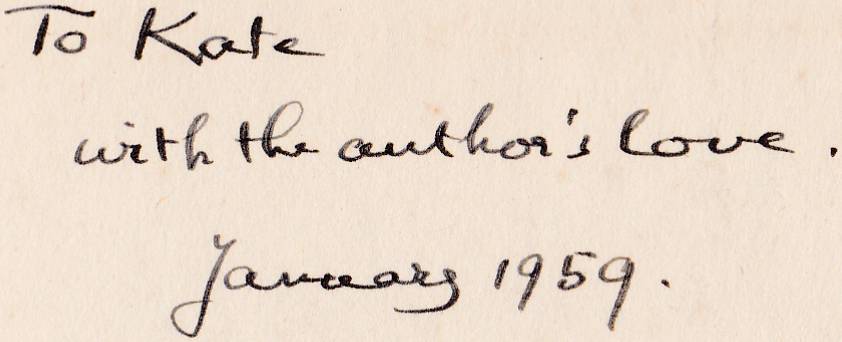 To Kate
with the author's love.
January 1959.